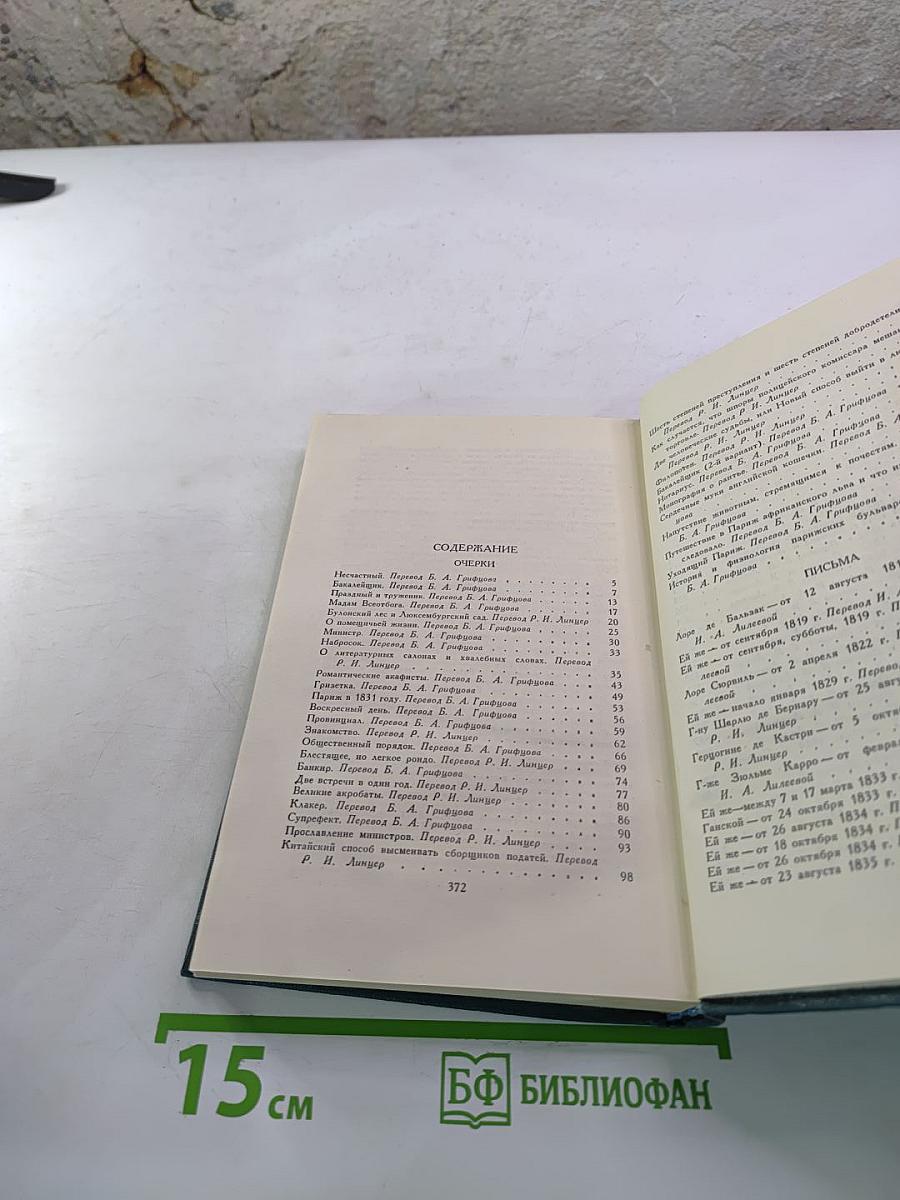 СОДЕРЖАНИЕ
ОЧЕРКИ
Несчастный. Перевод Б. А. Грифцова . . . . . . . . 5
Бакалейщик. Перевод Б. А. Грифцова . . . . . . . . 7
Праздный и труженик. Перевод Б. А. Грифцова . . . . . 13
Мадам Всеотбога. Перевод Б. А. Грифцова . . . . . . 17
Булонский лес и Люксембургский сад. Перевод Р. И. Линцер 20
О помещичьей жизни. Перевод Б. А. Грифцова . . . . . 25
Министр. Перевод Б. А. Грифцова . . . . . . . . 30
Набросок. Перевод Б. А. Грифцова . . . . . . . . 33
О литературных салонах и хвалебных словах. Перевод
Р. И. Линцер . . . . . . . . . . . . . 35
Романтические акафисты. Перевод Б. А. Грифцова . . . . 43
Гризетка. Перевод Б. А. Грифцова . . . . . . . . 49
Париж в 1831 году. Перевод Б. А. Грифцова . . . . . . 53
Воскресный день. Перевод Б. А. Грифцова . . . . . . 56
Провинциал. Перевод Б. А. Грифцова . . . . . . . 59
Знакомство. Перевод Р. И. Линцер . . . . . . . . 62
Общественный порядок. Перевод Б. А. Грифцова . . . . 66
Блестящее, но легкое рондо. Перевод Р. И. Линцер . . . . 69
Банкир. Перевод Б. А. Грифцова . . . . . . . . 74
Две встречи в один год. Перевод Р. И. Линцер . . . . . 77
Великие акробаты. Перевод Р. И. Линцер . . . . . . 80
Клакер. Перевод Б. А. Грифцова . . . . . . . . 86
Супрефект. Перевод Б. А. Грифцова . . . . . . . 90
Прославление министров. Перевод Р. И. Линцер . . . . . 93
Китайский способ высмеивать сборщиков податей. Перевод
Р. И. Линцер . . . . . . . . . . . . . 98
372
Шесть степеней преступления и шесть степеней добродетели
Перевод Р. И. Линцер . . . . . .
Как случается, что шпоры полицейского комиссара
торговле. Перевод Р. И. Линцер . . . .
Две человеческие судьбы, или Новый способ выйти в
Перевод Р. И. Линцер . . . . . .
Филипотен. Перевод Р. И. Линцер . . . .
Бакалейщик (2-й вариант). Перевод Б. А. Грифцова
Нотариус. Перевод Б. А. Грифцова . . . .
Монография о рантье. Перевод Б. А. Грифцова
Сердечные муки английской кошечки. Перевод Б. А.
цова . . . . . .
Напутствие животным, стремящимся к почестям.
Б. А. Грифцова . . . . . .
Путешествие в Париж африканского льва и что
следовало. Перевод Б. А. Грифцова . . . .
Уходящий Париж. Перевод Б. А. Грифцова . . . .
История и физиология парижских
Б. А. Грифцова . . . . . .
ПИСЬМА
Лоре де Бальзак — от 12 августа
И. А. Лилеевой . . . . . .
Ей же — от сентября 1819 г. Перевод И. А.
Ей же — от сентября, субботы, 1819 г.
леевой . . . . . .
Лоре Сюрвиль — от 2 апреля 1822 г.
леевой . . . . . .
Ей же — начало января 1829 г.
Г-ну Шарлю де Бернару — от 25
Р. И. Линцер . . . . . .
Герцогине де Кастри — от 5
Р. И. Линцер . . . . . .
Г-же Зюльме Карро — от
И. А. Лилеевой . . . . . .
Ей же — между 7 и 17 марта 1833 г.
Ганской — от 24 октября 1833 г.
Ей же — от 26 августа 1834 г.
Ей же — от 18 октября 1834 г.
Ей же — от 26 октября 1834 г.
Ей же — от 23 августа 1835 г.
15 см
БФ БИБЛИОФАН